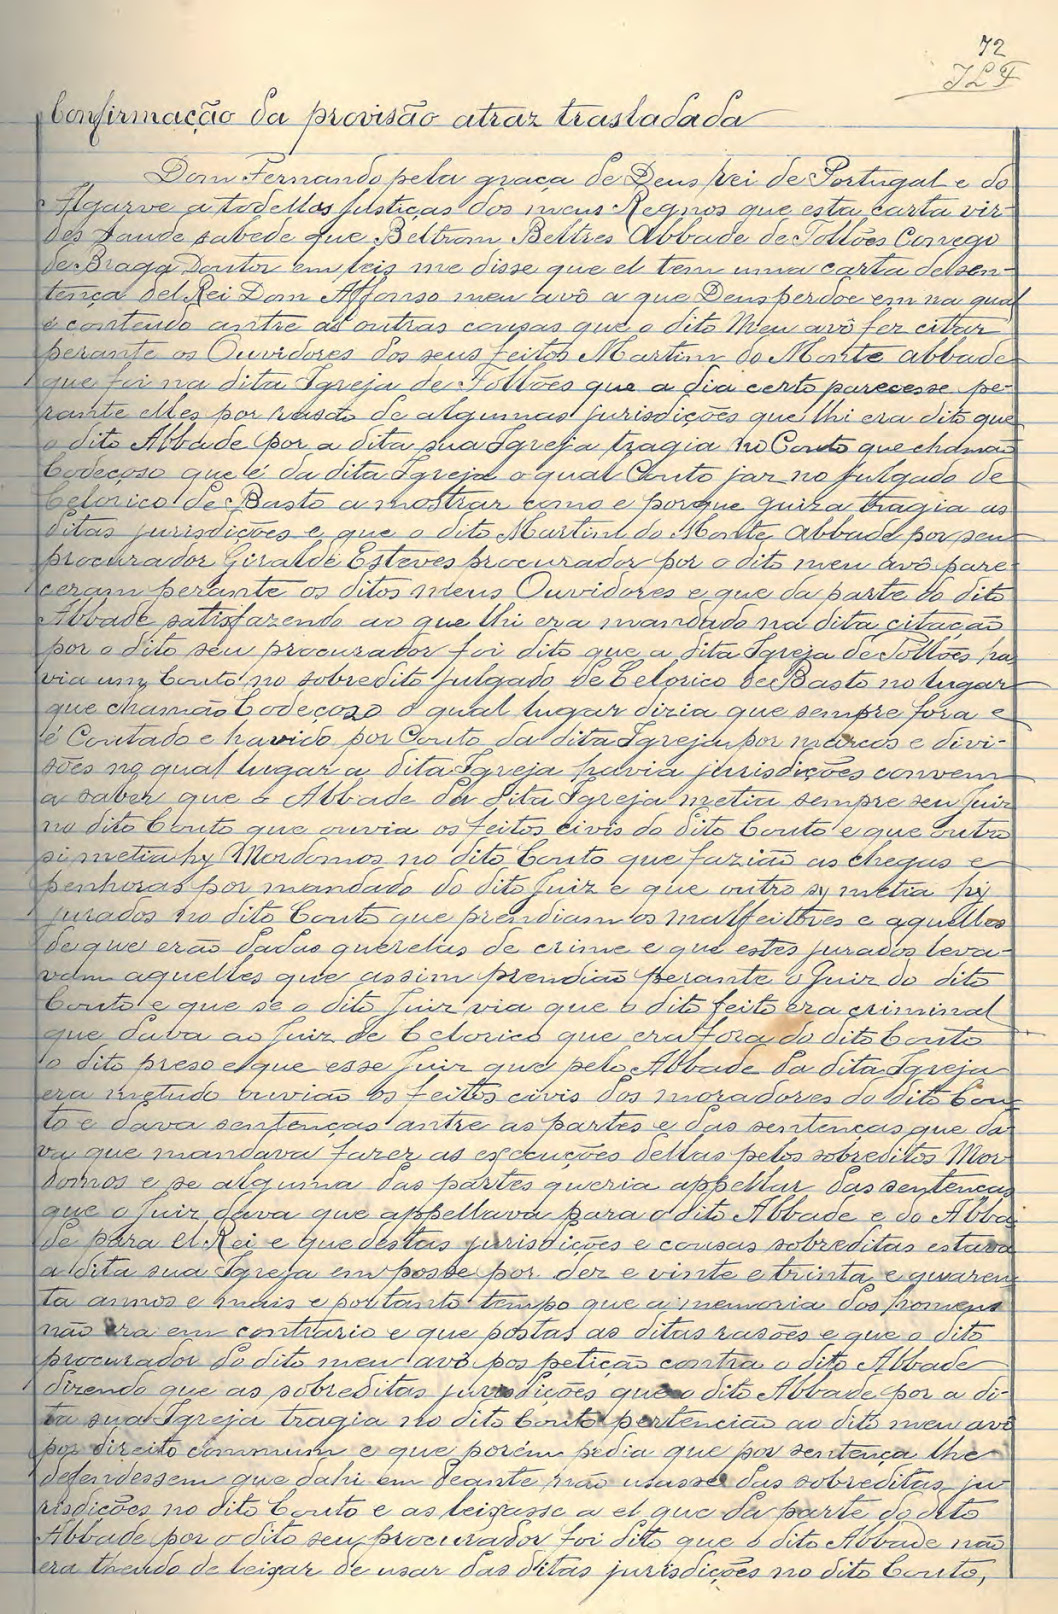 72
JLF
Confirmação da provisão atraz trasladada
Dom Fernando pela graça de Deus Rei de Portugal e do
Algarve a todellas justiças dos meus Regnos que esta carta vir-
des saude sabede que Beltrom Beltres Abbade de Tollões Conego
de Braga Doutor em leis me disse que el tem uma carta de sen-
tença del Rei Dom Affonso meu avô a que Deus perdoe em na qual
é contendo antre as outras cousas que o dito meu avô fez citar
perante os Ouvidores dos seus feitos Martim do Monte abbade
que foi na dita Igreja de Tollões que a dia certo parecesse pe-
rante elles por rasão de algumas jurisdições que lhi era dito que
o dito Abbade por a dita sua Igreja tragia no Couto que chamão
Codeçoso que é da dita Igreja o qual Couto jaz no julgado de
Celorico de Basto a mostrar como e porque guiza tragia as
ditas jurisdições e que o dito Martim do Monte Abbade por seu
procurador Giralde Esteves procurador por o dito meu avô pare-
ceram perante os ditos meus Ouvidores e que da parte do dito
Abbade satisfazendo ao que lhi era mandado na dita citação
por o dito seu procurador foi dito que a dita Igreja de Tollões ha-
via um Couto no sobredito julgado de Celorico de Basto no lugar
que chamão Codeçozo o qual lugar dizia que sempre fora e
é Coutado e havido por Couto da dita Igreja por marcos e divi-
sões no qual lugar a dita Igreja havia jurisdições convem
a saber que o Abbade da dita Igreja metia sempre seu Juiz
no dito Couto que ouvia os feitos civis do dito Couto e que outro
si metia hy Mordomos no dito Couto que fazião as chegas e
penhoras por mandado do dito Juiz e que outro sy metia hy
jurados no dito Couto que prendiam os malfeitores e aquelles
de que erão dadas querelas de crime e que estes jurados leva-
vam aquelles que assim prendião perante o Juiz do dito
Couto e que se o dito Juiz via que o dito feito era criminal
que dava ao Juiz de Celorico que era fora do dito Couto
o dito preso e que esse Juiz que pelo Abbade da dita Igreja
era metudo ouvião os feitos civis dos moradores do dito Cou-
to e dava sentenças antre as partes e das sentenças que da-
va que mandava fazer as execuções dellas pelos sobreditos Mor-
domos e se alguma das partes queria appellar das sentenças
que o Juiz dava que appellava para o dito Abbade e do Abba-
de para el Rei e que destas jurisdições e cousas sobreditas estava
a dita sua Igreja em posse por dez e vinte e trinta e quaren-
ta annos e mais e por tanto tempo que a memoria dos homens
não era em contrario e que postas as ditas rasões e que o dito
procurador do dito meu avô pos petição contra o dito Abbade
dizendo que as sobreditas jurisdições que o dito Abbade por a di-
ta sua Igreja tragia no dito Couto pertencião ao dito meu avô
por direito commum e que porém pedia que por sentença lhe
defendessem que dahi em deante não usasse das sobreditas ju-
risdições no dito Couto e as leixasse a el que da parte do dito
Abbade por o dito seu procurador foi dito que o dito Abbade não
era theudo de leixar de usar das ditas jurisdições no dito Couto,